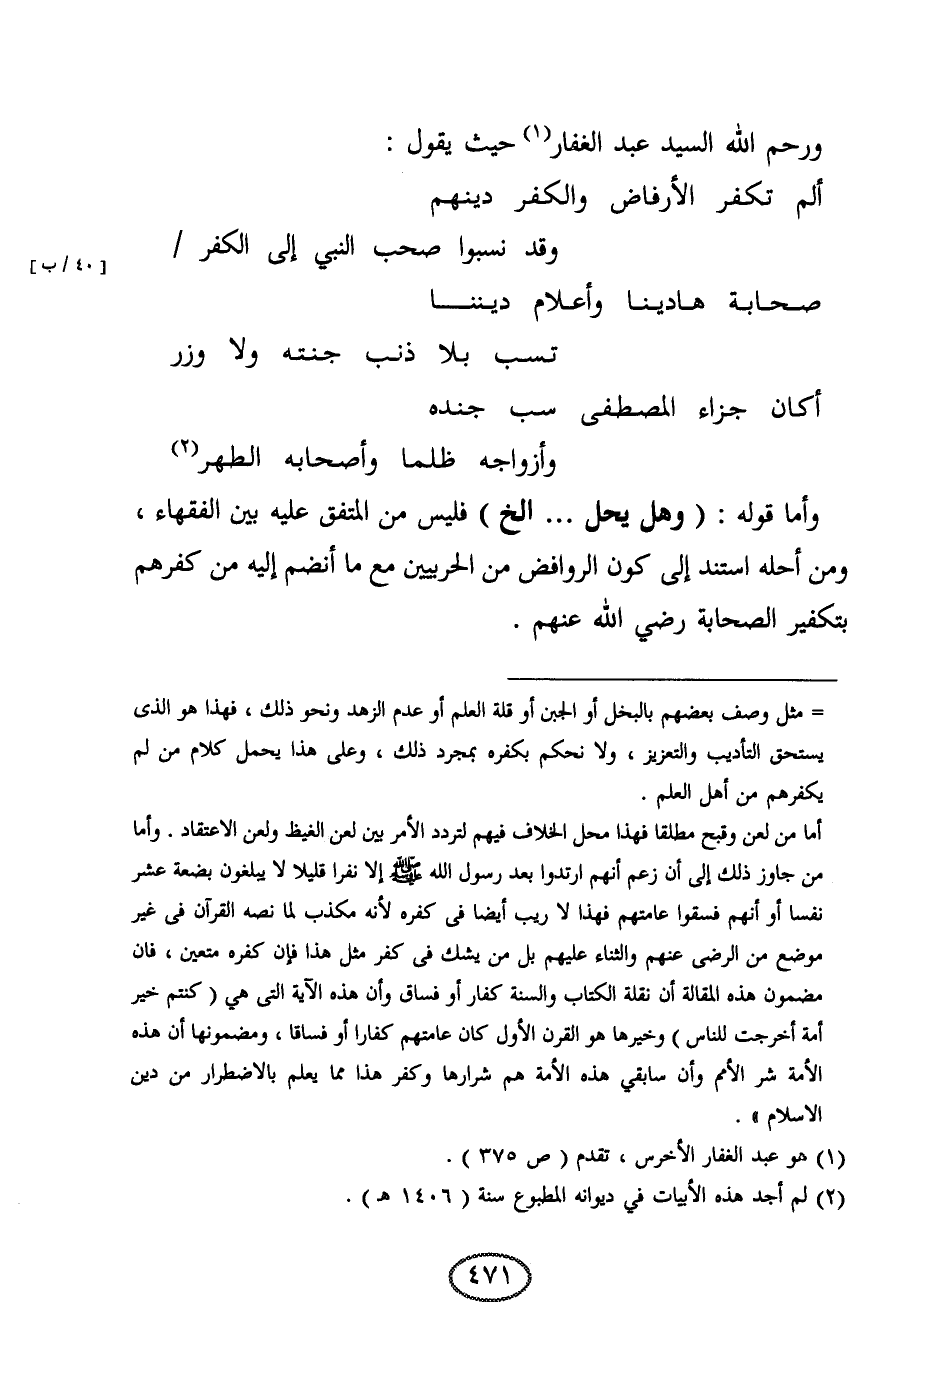 ورحم الله السيد عبد الغفار(١) حيث يقول :
ألم تكفر الأرفاض والكفر دينهم
وقد نسبوا صحب النبي إلى الكفر /
[ ٤٠ / ب ]
صحابة هادينا وأعلام ديننا
تسب بلا ذنب جنته ولا وزر
أكان جزاء المصطفى سب جنده
وأزواجه ظلما وأصحابه الطهر(٢)
وأما قوله : ( وهل يحل ... الخ ) فليس من المتفق عليه بين الفقهاء ،
ومن أحله استند إلى كون الروافض من الحربيين مع ما أنضم إليه من كفرهم
بتكفير الصحابة رضي الله عنهم .
= مثل وصف بعضهم بالبخل أو الجبن أو قلة العلم أو عدم الزهد ونحو ذلك ، فهذا هو الذى
يستحق التأديب والتعزيز ، ولا نحكم بكفره بمجرد ذلك ، وعلى هذا يحمل كلام من لم
يكفرهم من أهل العلم .
أما من لعن وقبح مطلقا فهذا محل الخلاف فيهم لتردد الأمر بين لعن الغيظ ولعن الاعتقاد . وأما
من جاوز ذلك إلى أن زعم أنهم ارتدوا بعد رسول الله ﷺ إلا نفرا قليلا لا يبلغون بضعة عشر
نفسا أو أنهم فسقوا عامتهم فهذا لا ريب أيضا فى كفره لأنه مكذب لما نصه القرآن فى غير
موضع من الرضى عنهم والثناء عليهم بل من يشك فى كفر مثل هذا فإن كفره متعين ، فان
مضمون هذه المقالة أن نقلة الكتاب والسنة كفار أو فساق وأن هذه الآية التى هي ( كنتم خير
أمة أخرجت للناس ) وخيرها هو القرن الأول كان عامتهم كفارا أو فساقا ، ومضمونها أن هذه
الأمة شر الأمم وأن سابقي هذه الأمة هم شرارها وكفر هذا مما يعلم بالاضطرار من دين
الاسلام » .
(١) هو عبد الغفار الأخرس ، تقدم ( ص ٣٧٥ ) .
(٢) لم أجد هذه الأبيات في ديوانه المطبوع سنة ( ١٤٠٦ هـ ) .
٤٧١